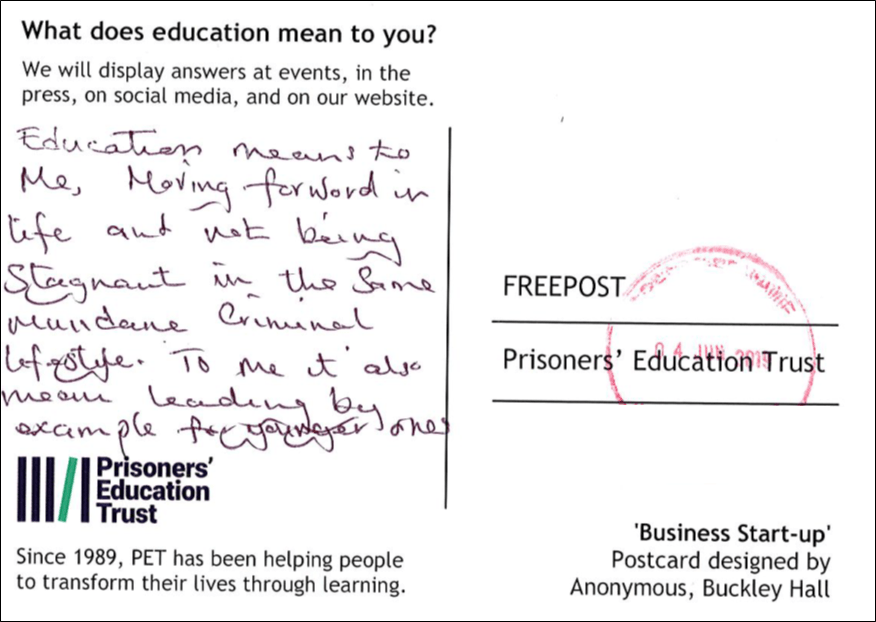 What does education mean to you?
We will display answers at events, in the
press, on social media, and on our website.
Education means to
Me, Moving forword in
life and not being
Stagnant in the Same
mundane Criminal
lifestyle. To me it also
mean leading by
example for younger ones
Prisoners'
Education
Trust
Since 1989, PET has been helping people
to transform their lives through learning.
FREEPOST
Prisoners' Education Trust
04 JUN 2019
'Business Start-up'
Postcard designed by
Anonymous, Buckley Hall